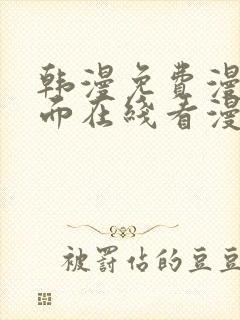 韩漫免费漫
而在线看漫
被罰佔的豆豆